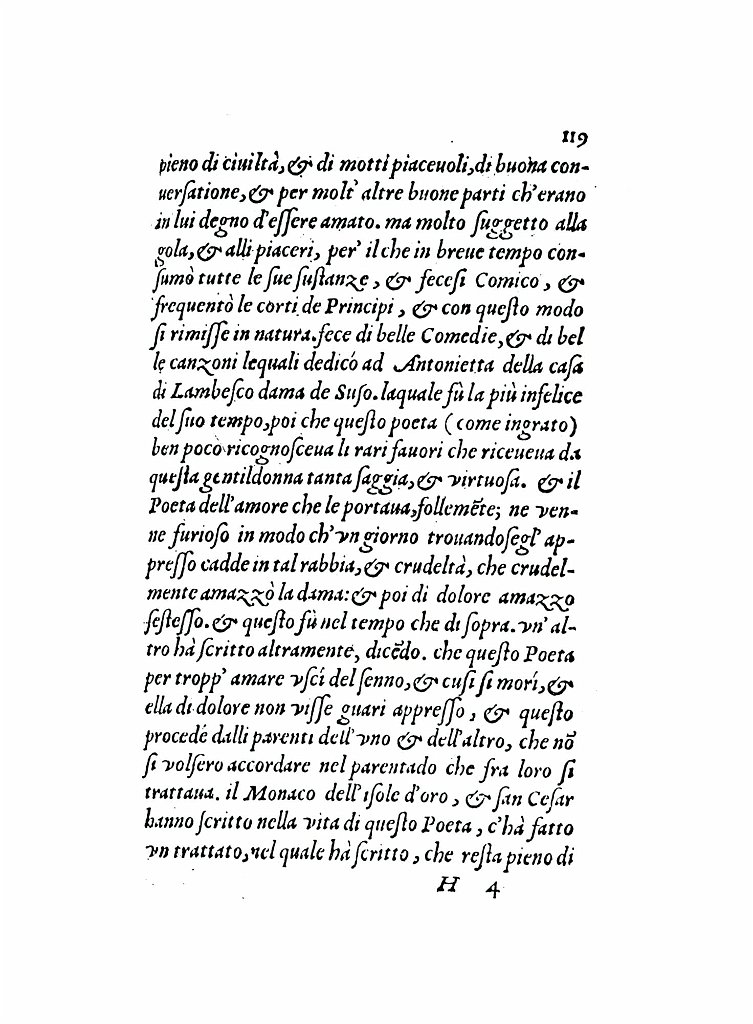 119
pieno di ciuiltà, & di motti piaceuoli, di buona con-
uerſatione, & per molt' altre buone parti ch'erano
in lui degno d'eſſere amato. ma molto ſuggetto alla
gola, & alli piaceri, per' il che in breue tempo con-
ſumò tutte le ſue ſuſtanze, & feceſi Comico, &
frequentò le corti de Principi, & con queſto modo
ſi rimiſſe in natura. fece di belle Comedie, & di bel
le canzoni lequali dedicó ad Antonietta della caſa
di Lambeſco dama de Suſo. laquale fù la più infelice
del ſuo tempo, poi che queſto poeta (come ingrato)
ben pocò ricognoſceua li rari fauori che riceueua da
queſta gentildonna tanta ſaggia, & virtuoſa. & il
Poeta dell'amore che le portaua, follemẽte; ne ven-
ne furioſo in modo ch'vn giorno trouandoſegl' ap-
preſſo cadde in tal rabbia, & crudeltà, che crudel-
mente amazzò la dama: & poi di dolore amazzo
ſeſteſſo. & queſto fù nel tempo che di ſopra. vn' al-
tro hà ſcritto altramente, dicẽdo. che queſto Poeta
per tropp' amare vſcí del ſenno, & cuſi ſi morí, &
ella di dolore non viſſe guari appreſſo, & queſto
procedé dalli parenti dell' vno & dell'altro, che nõ
ſi volſero accordare nel parentado che fra loro ſi
trattaua. il Monaco dell'iſole d'oro, & ſan Ceſar
hanno ſcritto nella vita di queſto Poeta, c'hà fatto
vn trattato, nel quale hà ſcritto, che reſta pieno di
H 4